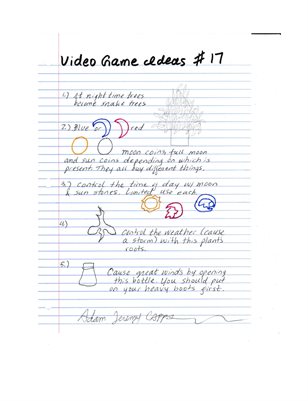 Video Game Ideas #17
1.) At night time trees
become snake trees
2.) Blue or red
moon coins full moon
and sun coins depending on which is
present. They all buy different things.
3.) Control the time of day w/ moon
& sun stones. Limited use each
4.)
Control the weather (cause
a storm) with this plants
roots.
5.)
Cause great winds by opening
this bottle. You should put
on your heavy boots first.
Adam Jeremy Capps